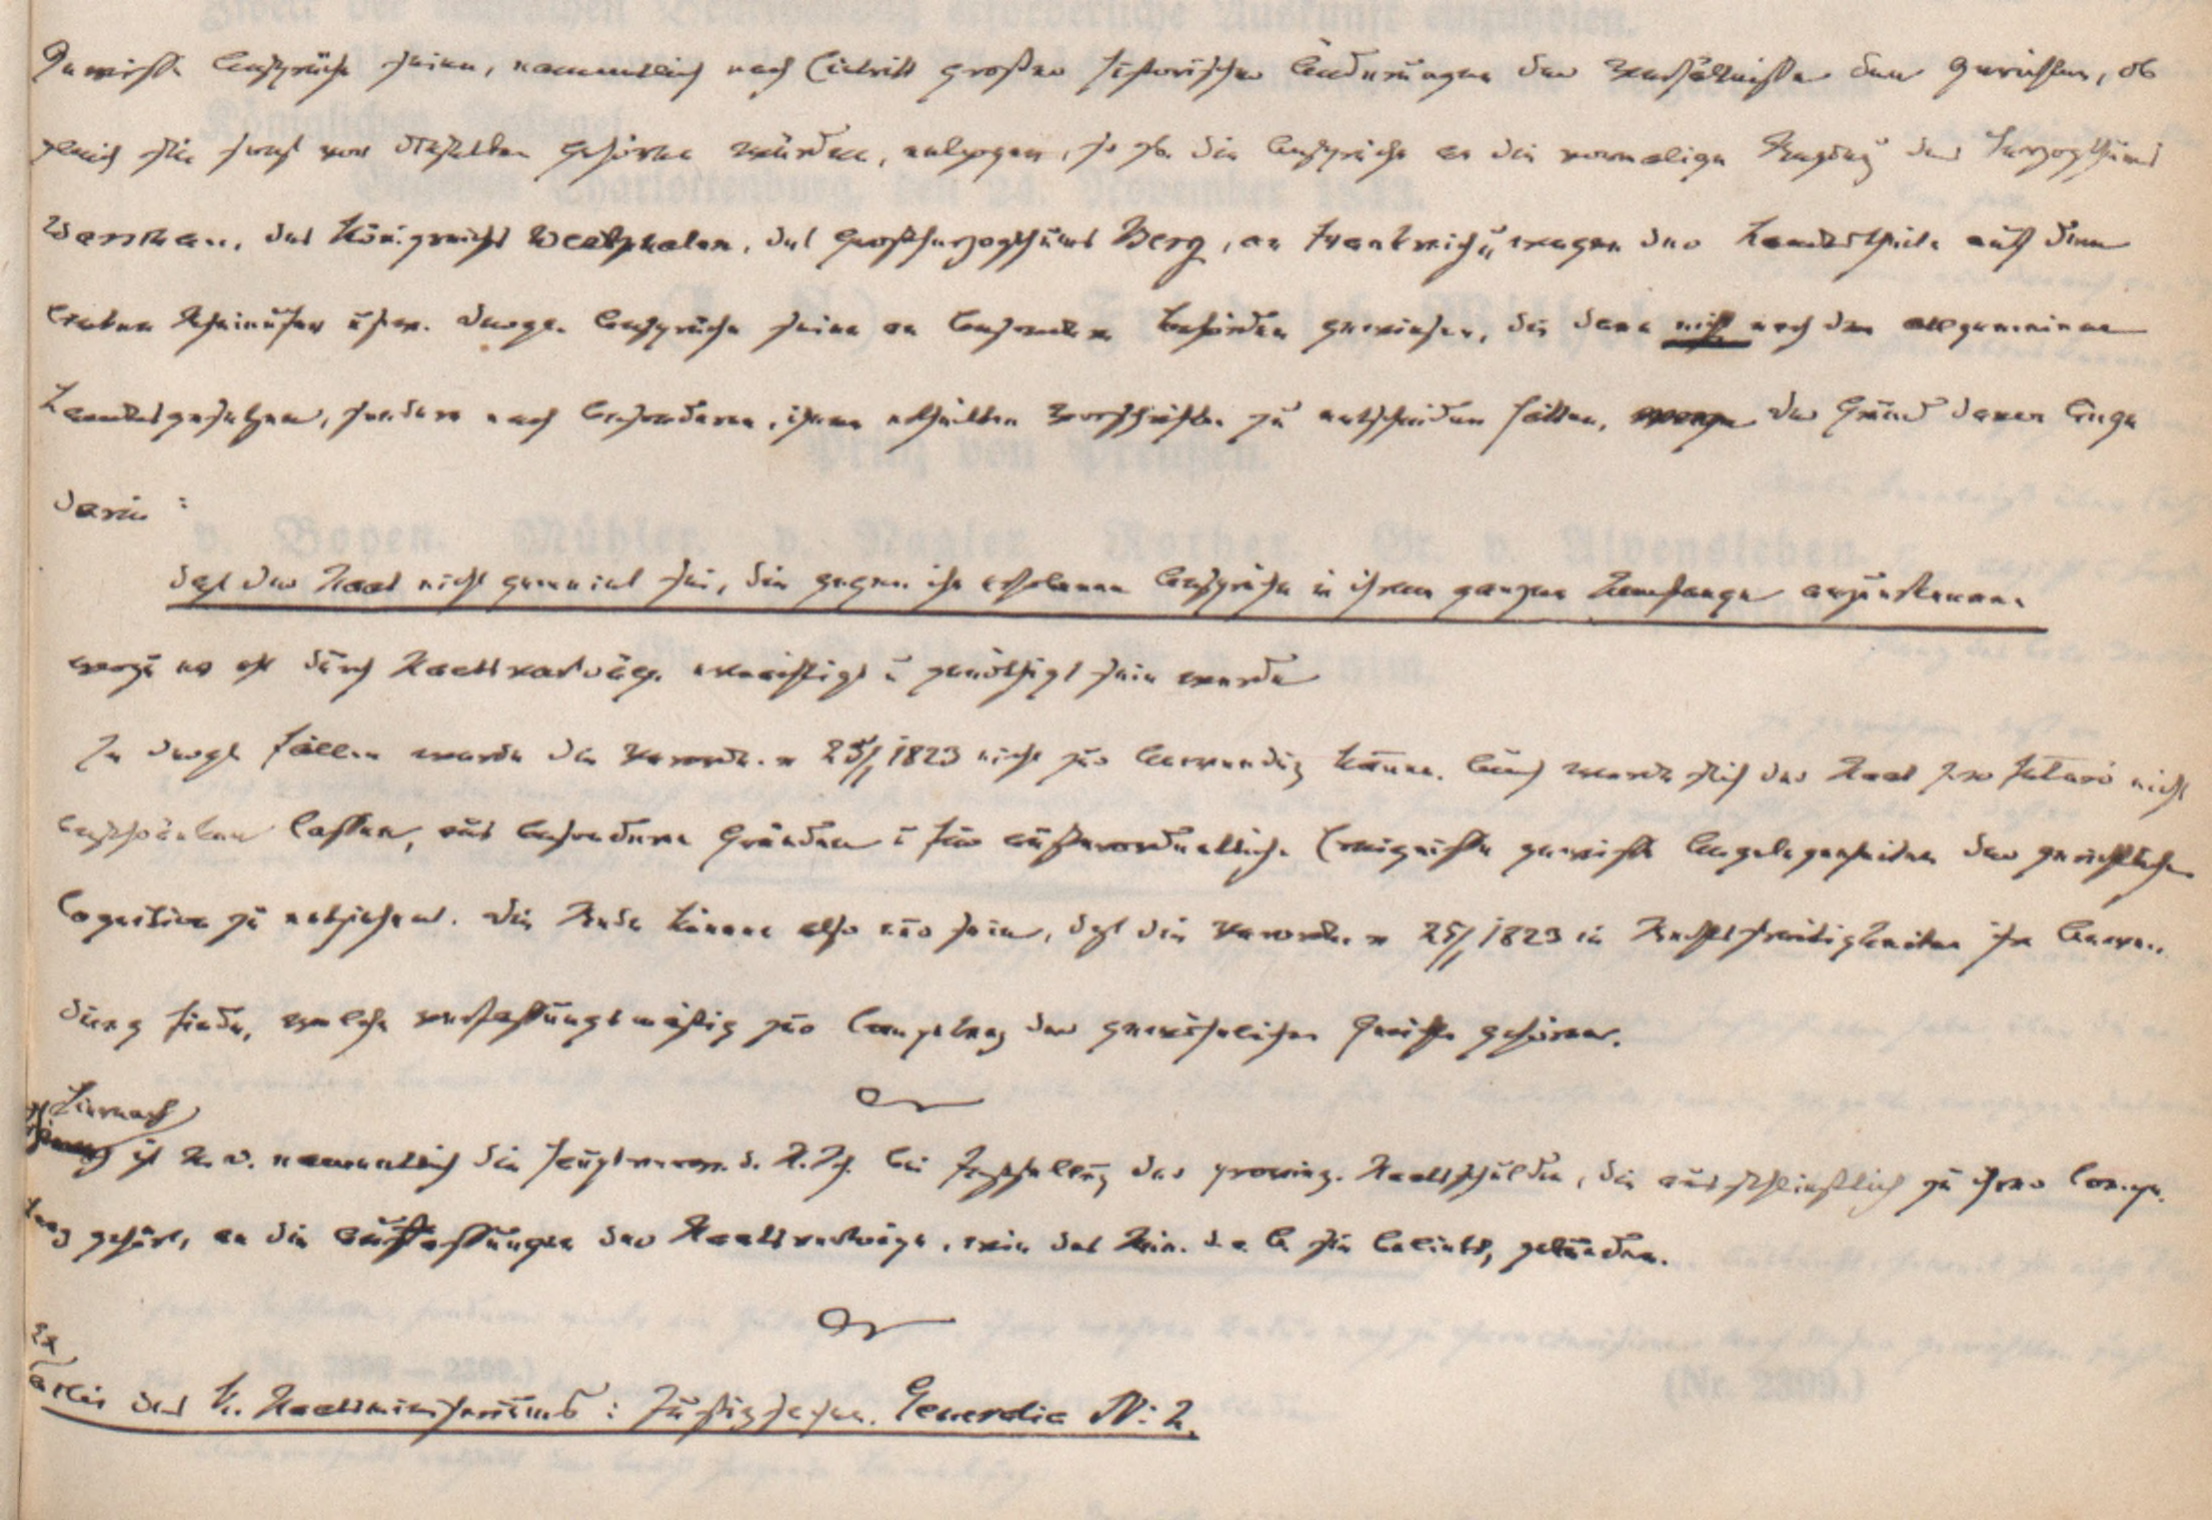 Gewisse Ansprüche seien, namentlich nach Eintritt großer historischer Änderungen der Verhältnisse den Gerichten, ob
gleich sie sonst vor dieselben gehören würden, entzogen, so zb. die Ansprüche an die vormalige Regierg des Herzogthums
Warschau, des Königreichs Westphalen, des Großherzogthums Berg, an Frankreich u. wegen der Landestheile auf dem
linken Rheinufer u.s.w. Dergl. Ansprüche seien an besondere Behörden gewiesen, die dann nicht nach den allgemeinen
Landesgesetzen, sondern nach besonderen, ihnen ertheilten Vorschriften zu entscheiden hätten, der Grund davon liege
darin:
daß der Staat nicht gemeint sei, die gegen ihn erhobenen Ansprüche in ihrem ganzen Umfange anzuerkennen
wozu er oft durch Staatsverträge berechtigt u genöthigt sein werde
In dergl Fällen werde die Verordn. v 25/1 1823 nicht zur Anwendung kommen. Auch werde sich der Staat pro futuro nicht
beschränken lassen, aus besonderen Gründen u für außerordentliche Ereignisse gewisse Angelegenheiten der gerichtlichen
Cognition zu entziehen. Die Rede könne also nur sein, daß die Verordn. v 25/1 1823 in Rechtsstreitigkeiten ihre Anwen-
dung finde, welche verfassungsmäßig zur Competenz der gewöhnlichen Gerichte gehören.
Hiernach
ist namentlich die Hauptverw. d. St. Sch. bei Feststellung der proving. Staatsschulden, die ausschließlich zu ihrer Compe-
tenz gehört, an die Auffassungen der Staatsverträge, wie das Min. d. a. A. sie beliebt, gebunden.
Ex
actis des K. Staatsministeriums: Justizsachen. Generalia N: 2.